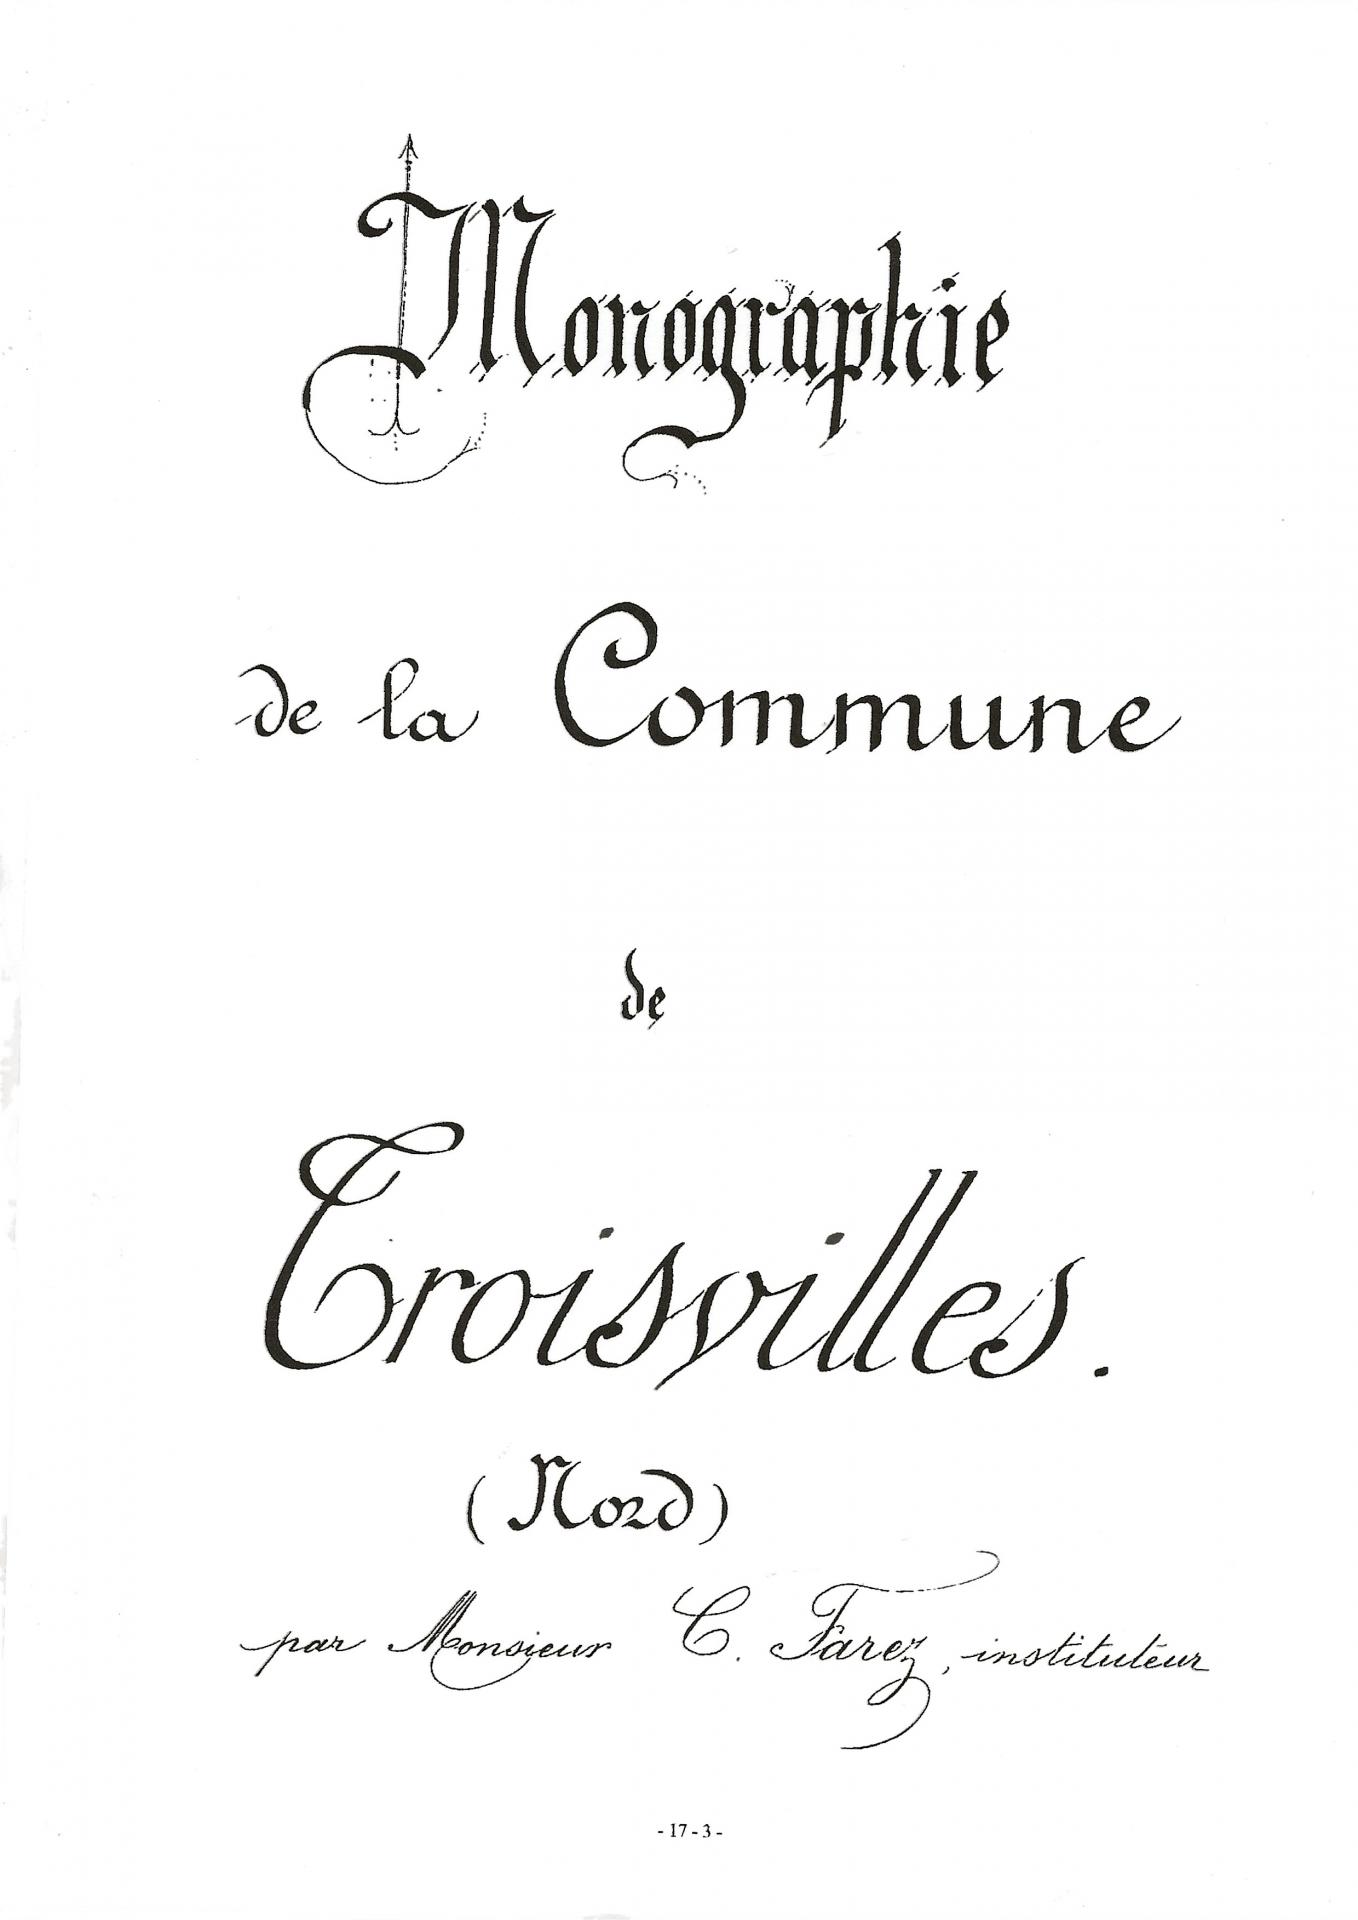 Monographie
de la Commune
de
Troisvilles.
(Nord)
par Monsieur C. Farez, instituteur
- 17 - 3 -